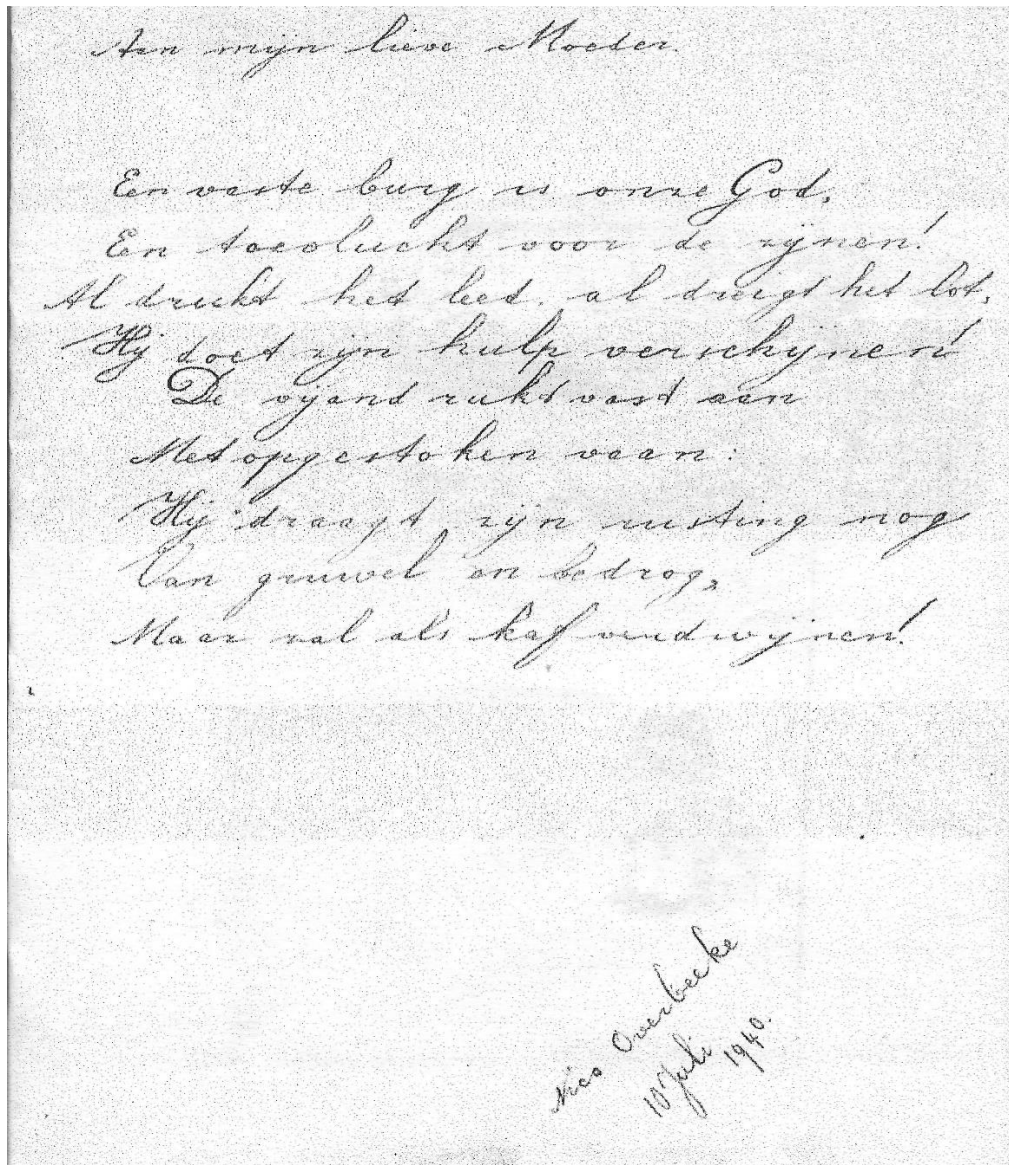 Aan mijn lieve Moeder.
Een vaste burg is onze God,
Een toevlucht voor de zijnen!
Al drukt het leed, al dreigt het lot,
Hij doet zijn hulp verschijnen!
De vijand rukt vast aan
Met opgestoken vaan:
Hij draagt zijn rusting nog
Van gruwel en bedrog,
Maar zal als kaf verdwijnen!
Nico Overbeeke
10 Juli 1940.